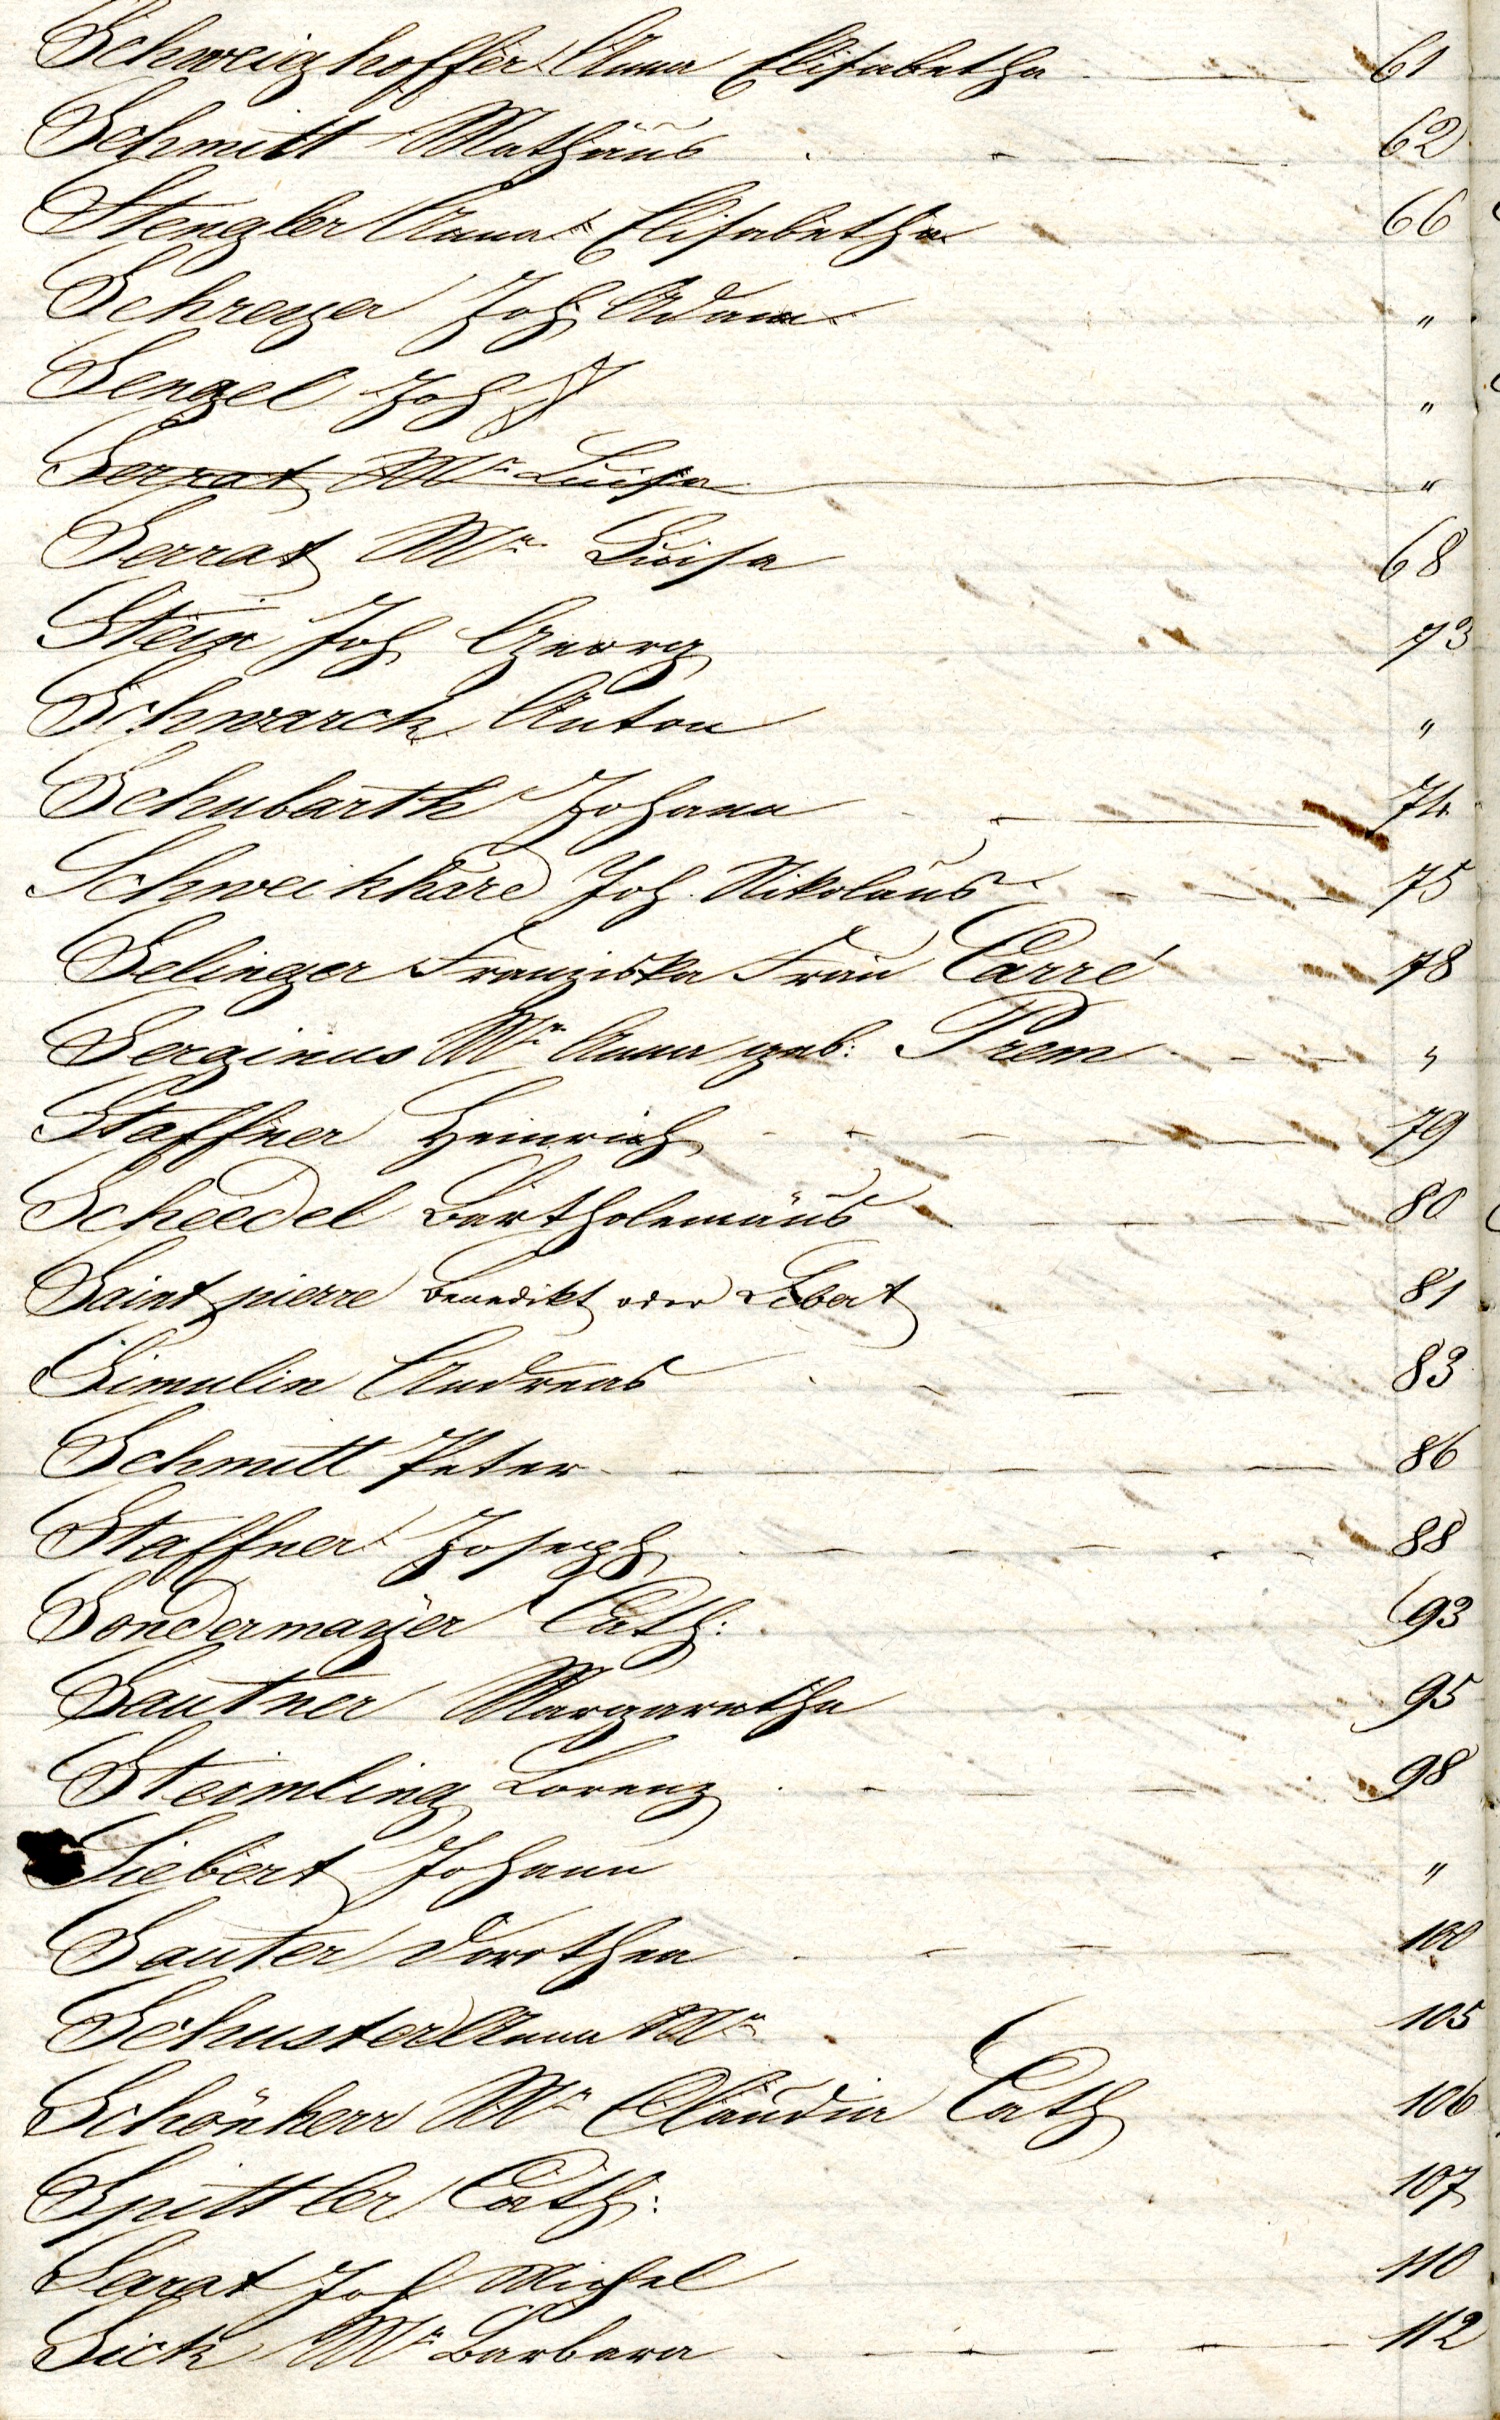 Schweizhoffer Anna Elisabetha 61
Schmitt Mathäus 62
Stengler Anna Elisabetha 66
Schreyer Joh Adam "
Sengel Joh "
Serrat Mr Luisa "
Serrat Mr Luisa 68
Stein Joh Georg 73
Schwarck Anton "
Schubarth Johann 74
Schweikhard Joh. Nikolaus 75
Selinger Franziska Frau Carré 78
Serginus Mr Anna geb: Prem "
Staffner Heinrich 79
Scheedel Bartholemäus 80
Saint pierre Benedikt oder Lebert 81
Simulin Andreas 83
Schmitt Peter 86
Staffner Joseph 88
Sondermayer Cath: 93
Sautner Margaretha 95
Steimling Lorenz 98
Siebert Johann "
Sauter Dorothea 100
Schuster Anna Mr 105
Schönherr Mr Claudia Cath 106
Spittler Cath: 107
Sarat Joh Michel 110
Sick Mr Barbara 112